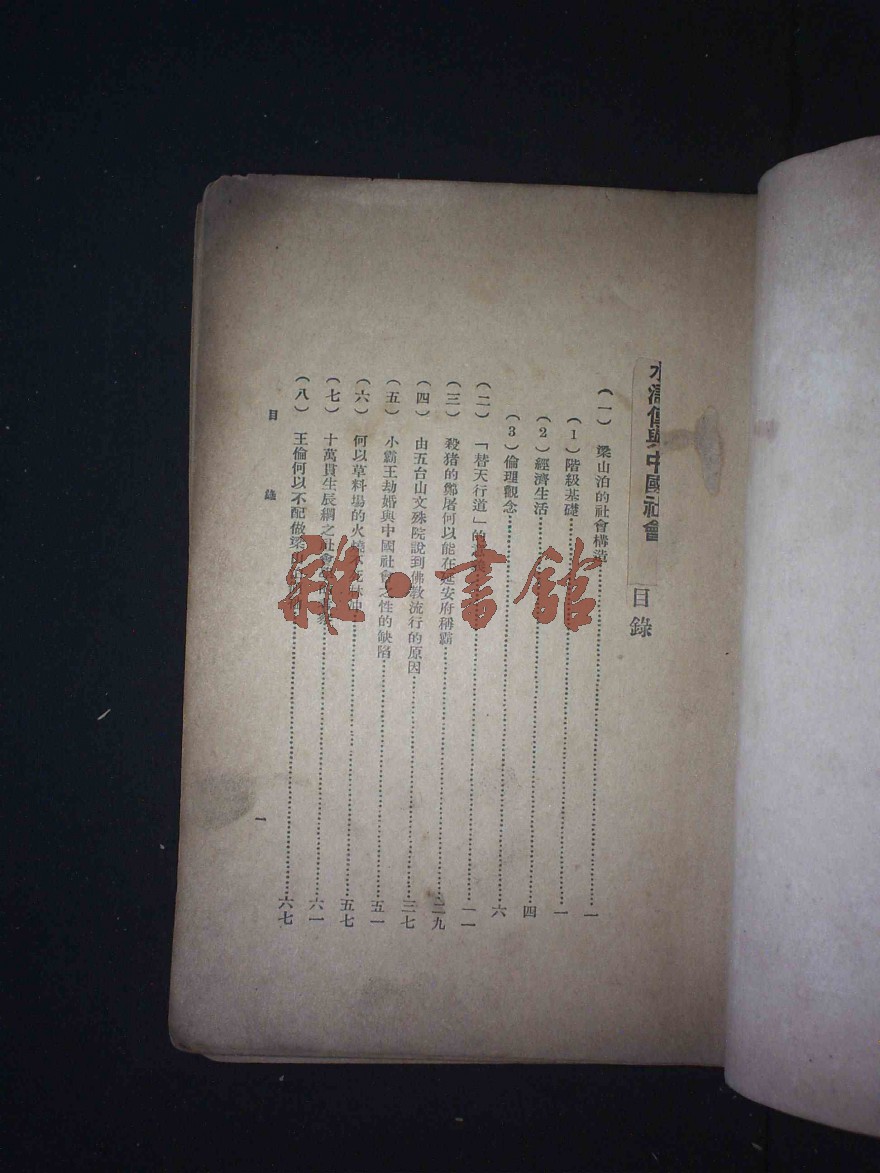 水滸傳與中國社會 目錄
（一） 梁山泊的社會構造……一
（1）階級基礎……一
（2）經濟生活……四
（3）倫理觀念……六
（二） 「替天行道」的……一一
（三） 殺猪的鄭屠何以能在延安府稱霸……二九
（四） 由五台山文殊院說到佛教流行的原因……三七
（五） 小霸王劫婚與中國社會之性的缺陷……五一
（六） 何以草料場的火燒不死林冲……五七
（七） 十萬貫生辰綱之社會……六一
（八） 王倫何以不配做梁山……六七
目錄
一
雅·書館